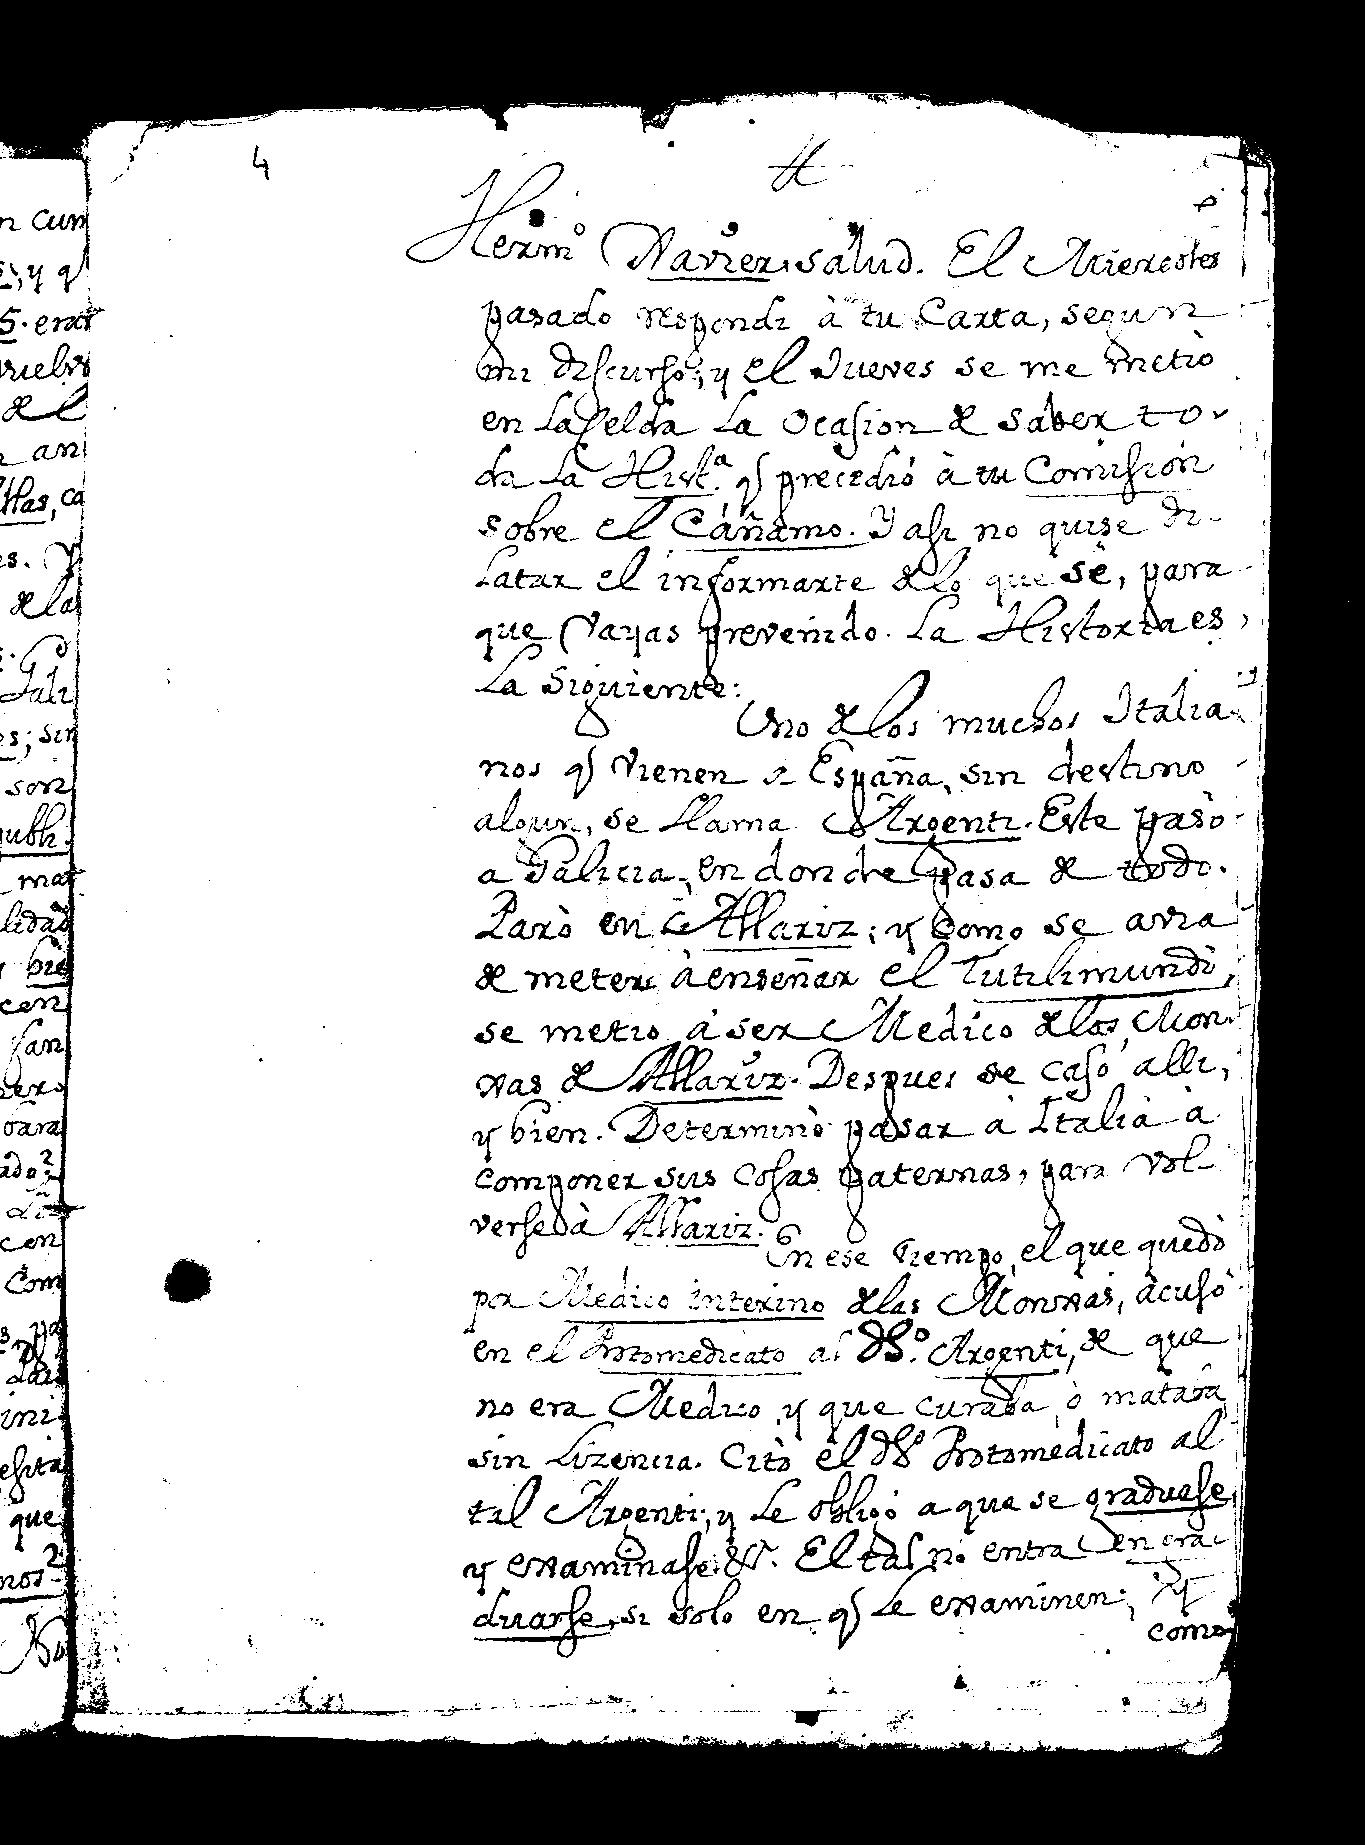 n cum
s, y q
S. eran
vuelvo
de l
n an
llas, ca
es. Y
de la
Gali
es; sin
son
publi.
mat
lidad
y bie
cen
san
pero
para
ado?
cen
Com
s pa
ini
esita
que
nos?
No
4
Herm.º Xavier, salud. El Miercoles
pasado respondi à tu Carta, segun
mi discurso; y el Jueves se me metiò
en la Celda la Ocasion de saber to-
da la Hist.ª q precediò à tu Comision
sobre el Cáñamo. Y asi no quise di-
latar el informarte de lo que sè, para
que Vayas prevenido. La Historia es,
la Siguiente:
Uno de los muchos Italia-
nos q vienen a España, sin destino
algun, se llama Argenti. Este pasò
a Galicia, en donde pasa de todo.
Parò en Allariz; y Como se avia
de meter à enseñar el Tutilimundi,
se metio à ser Medico de las Mon-
xas de Allariz. Despues se casò alli,
y bien. Determinò pasar à Italia à
componer sus cosas paternas, para vol-
verse à Allariz.
En ese tiempo, el que quedò
por Medico interino de las Monxas, acusò
en el Protomedicato al dh.º Argenti, de que
no era Medico y que curaba, ò mataba
sin Lizencia. Citò el dh.º Protomedicato al
tal Argenti; y le obligò a que se graduase,
y exâminase &c.ª. El tal no entra en gra-
duarse, si solo en q le examinen; Y
como